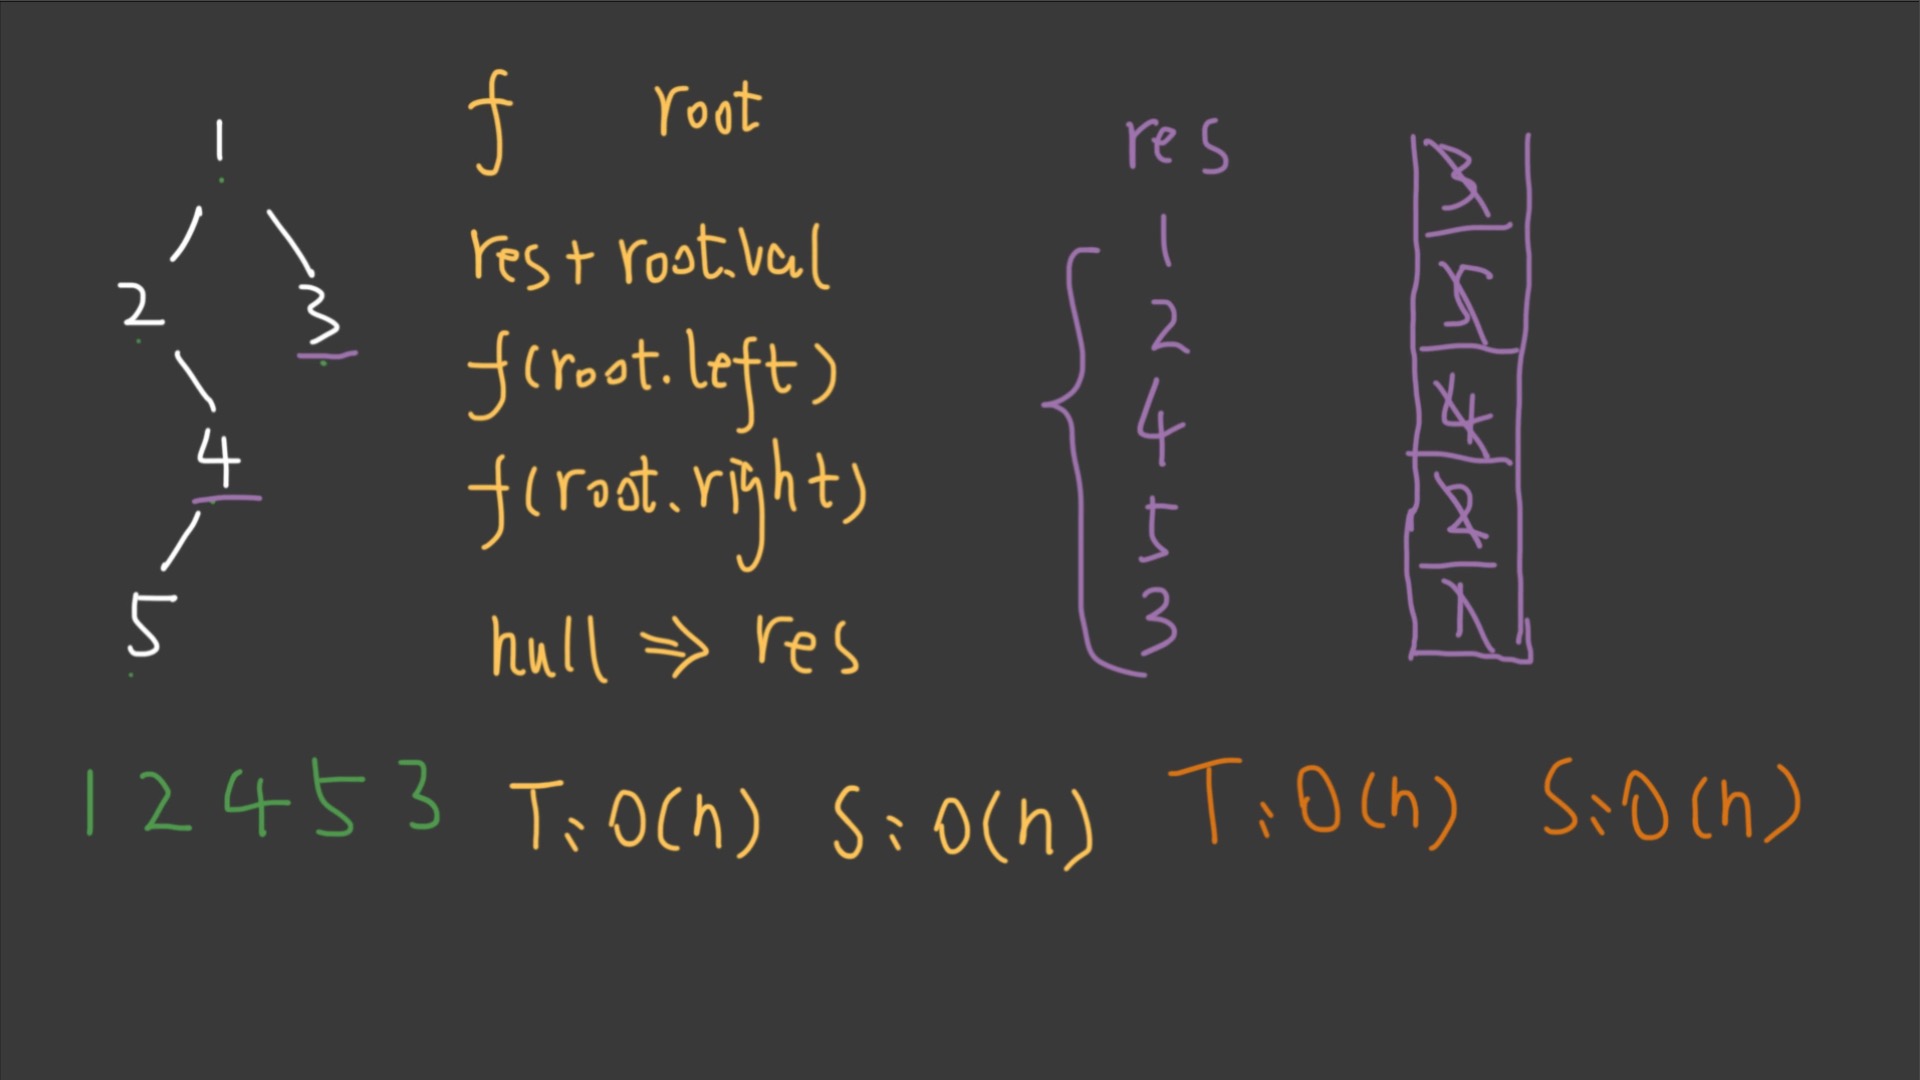 1
2 3
4
5
f root
res + root.val
f(root.left)
f(root.right)
null => res
res
1
2
4
5
3
3
5
4
2
1
1 2 4 5 3
T: O(n) S: O(n)
T: O(n) S: O(n)